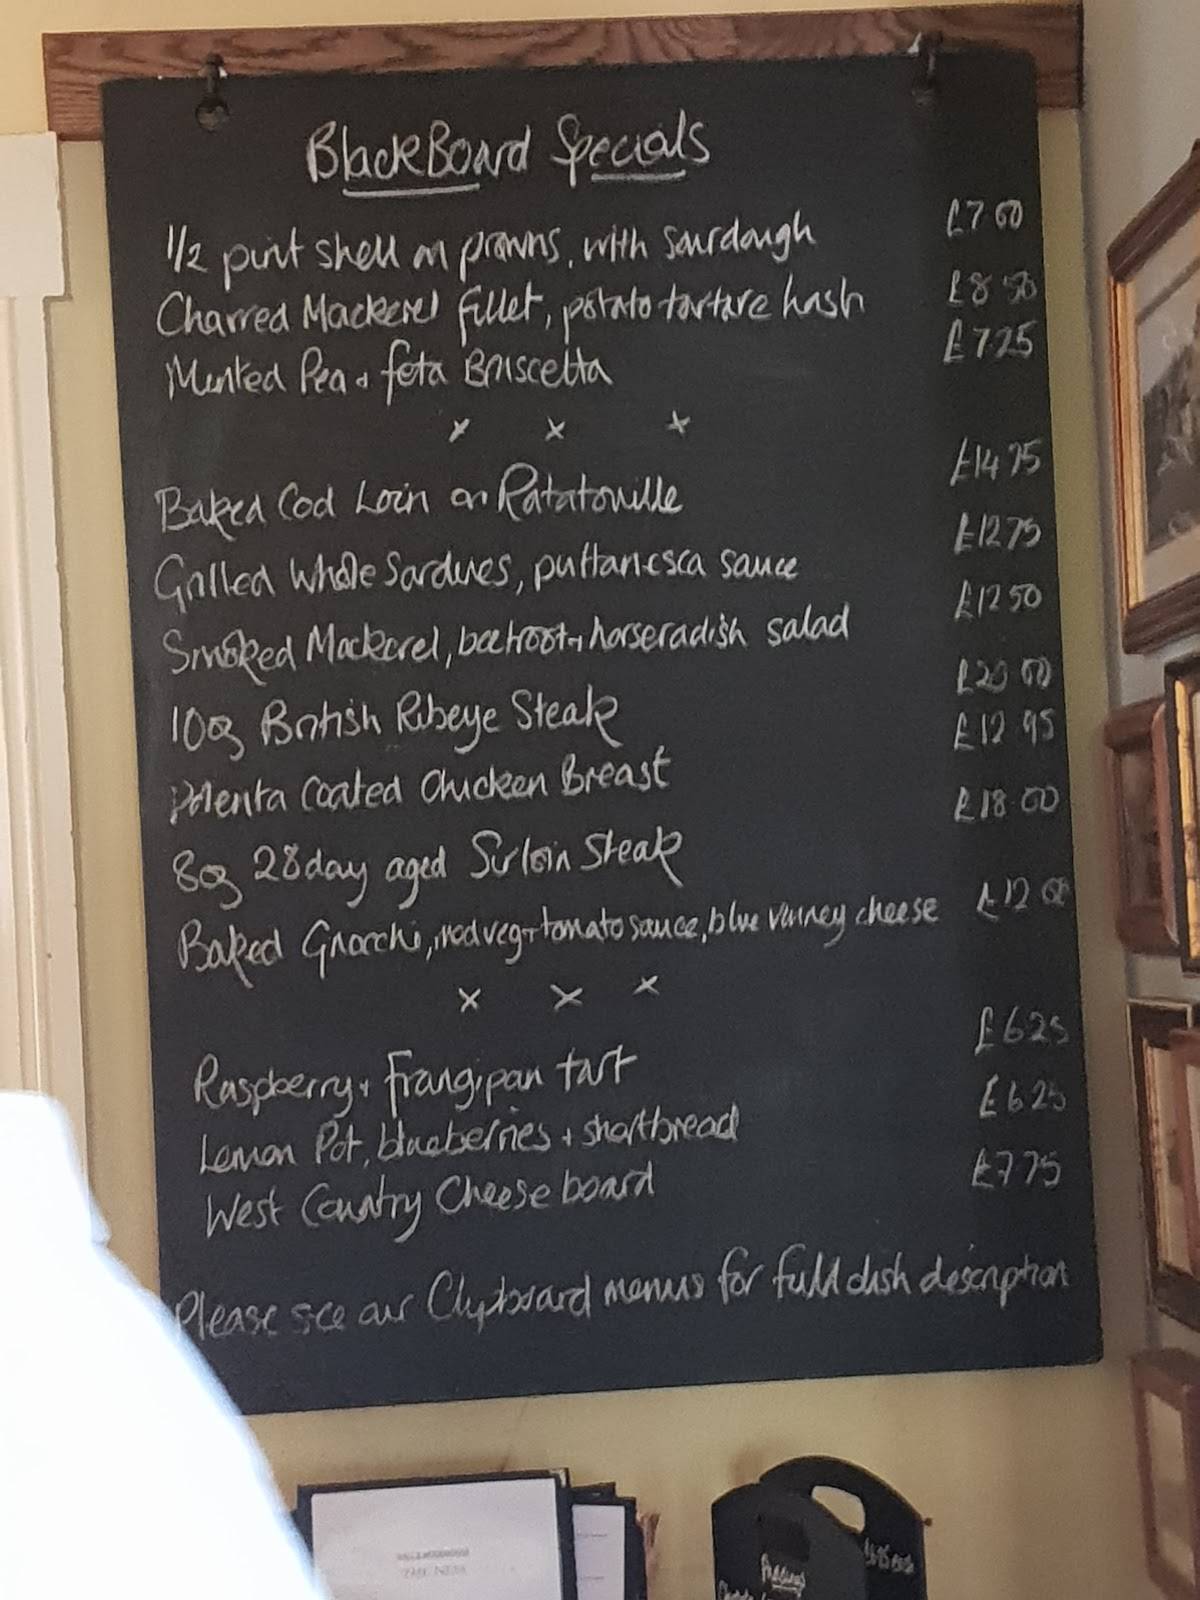 BlackBoard Specials
1/2 pint shell on prawns, with sourdough £7.00
Charred Mackerel fillet, potato tartare hash £8.50
Minted Pea + feta Bruscetta £7.25
x x x
Baked Cod Loin on Ratatouille £14.75
Grilled Whole Sardines, puttanesca sauce £12.75
Smoked Mackerel, beetroot + horseradish salad £12.50
10oz British Ribeye Steak £20.00
Polenta Coated Chicken Breast £12.95
8oz 28 day aged Sirloin Steak £18.00
Baked Gnocchi, med veg + tomato sauce, blue vinney cheese £12.00
x x x
Raspberry + Frangipan tart £6.25
Lemon Pot, blueberries + shortbread £6.25
West Country Cheese board £7.75
Please see our Clipboard menus for full dish description
Puddings